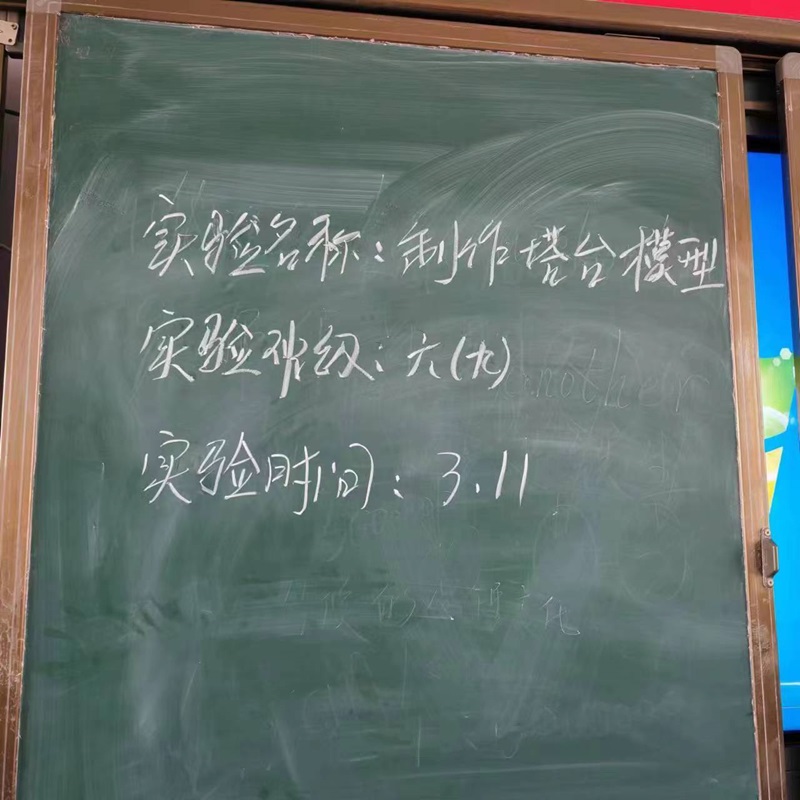 实验名称:制作塔台模型
实验班级:六(九)
another
实验时间:3.11